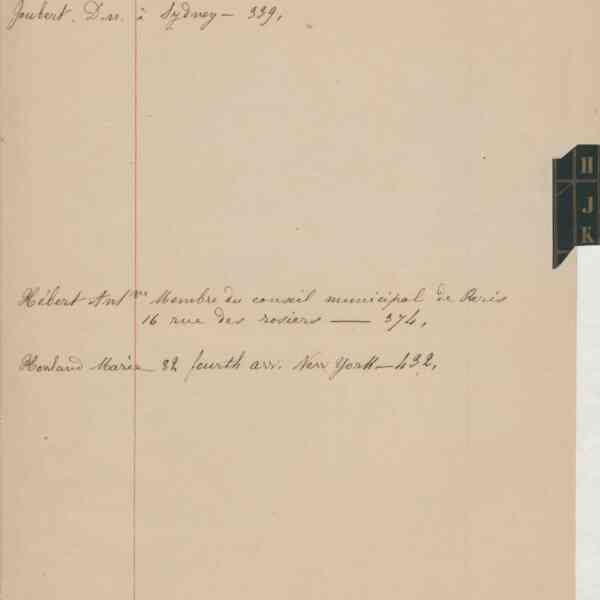 Joubert. D.n. à Sydney – 339,
H
J
K
Hébert Antne Membre du conseil municipal de Paris
16 rue des rosiers — 374,
Marie 82 fourth av. New York – 432,